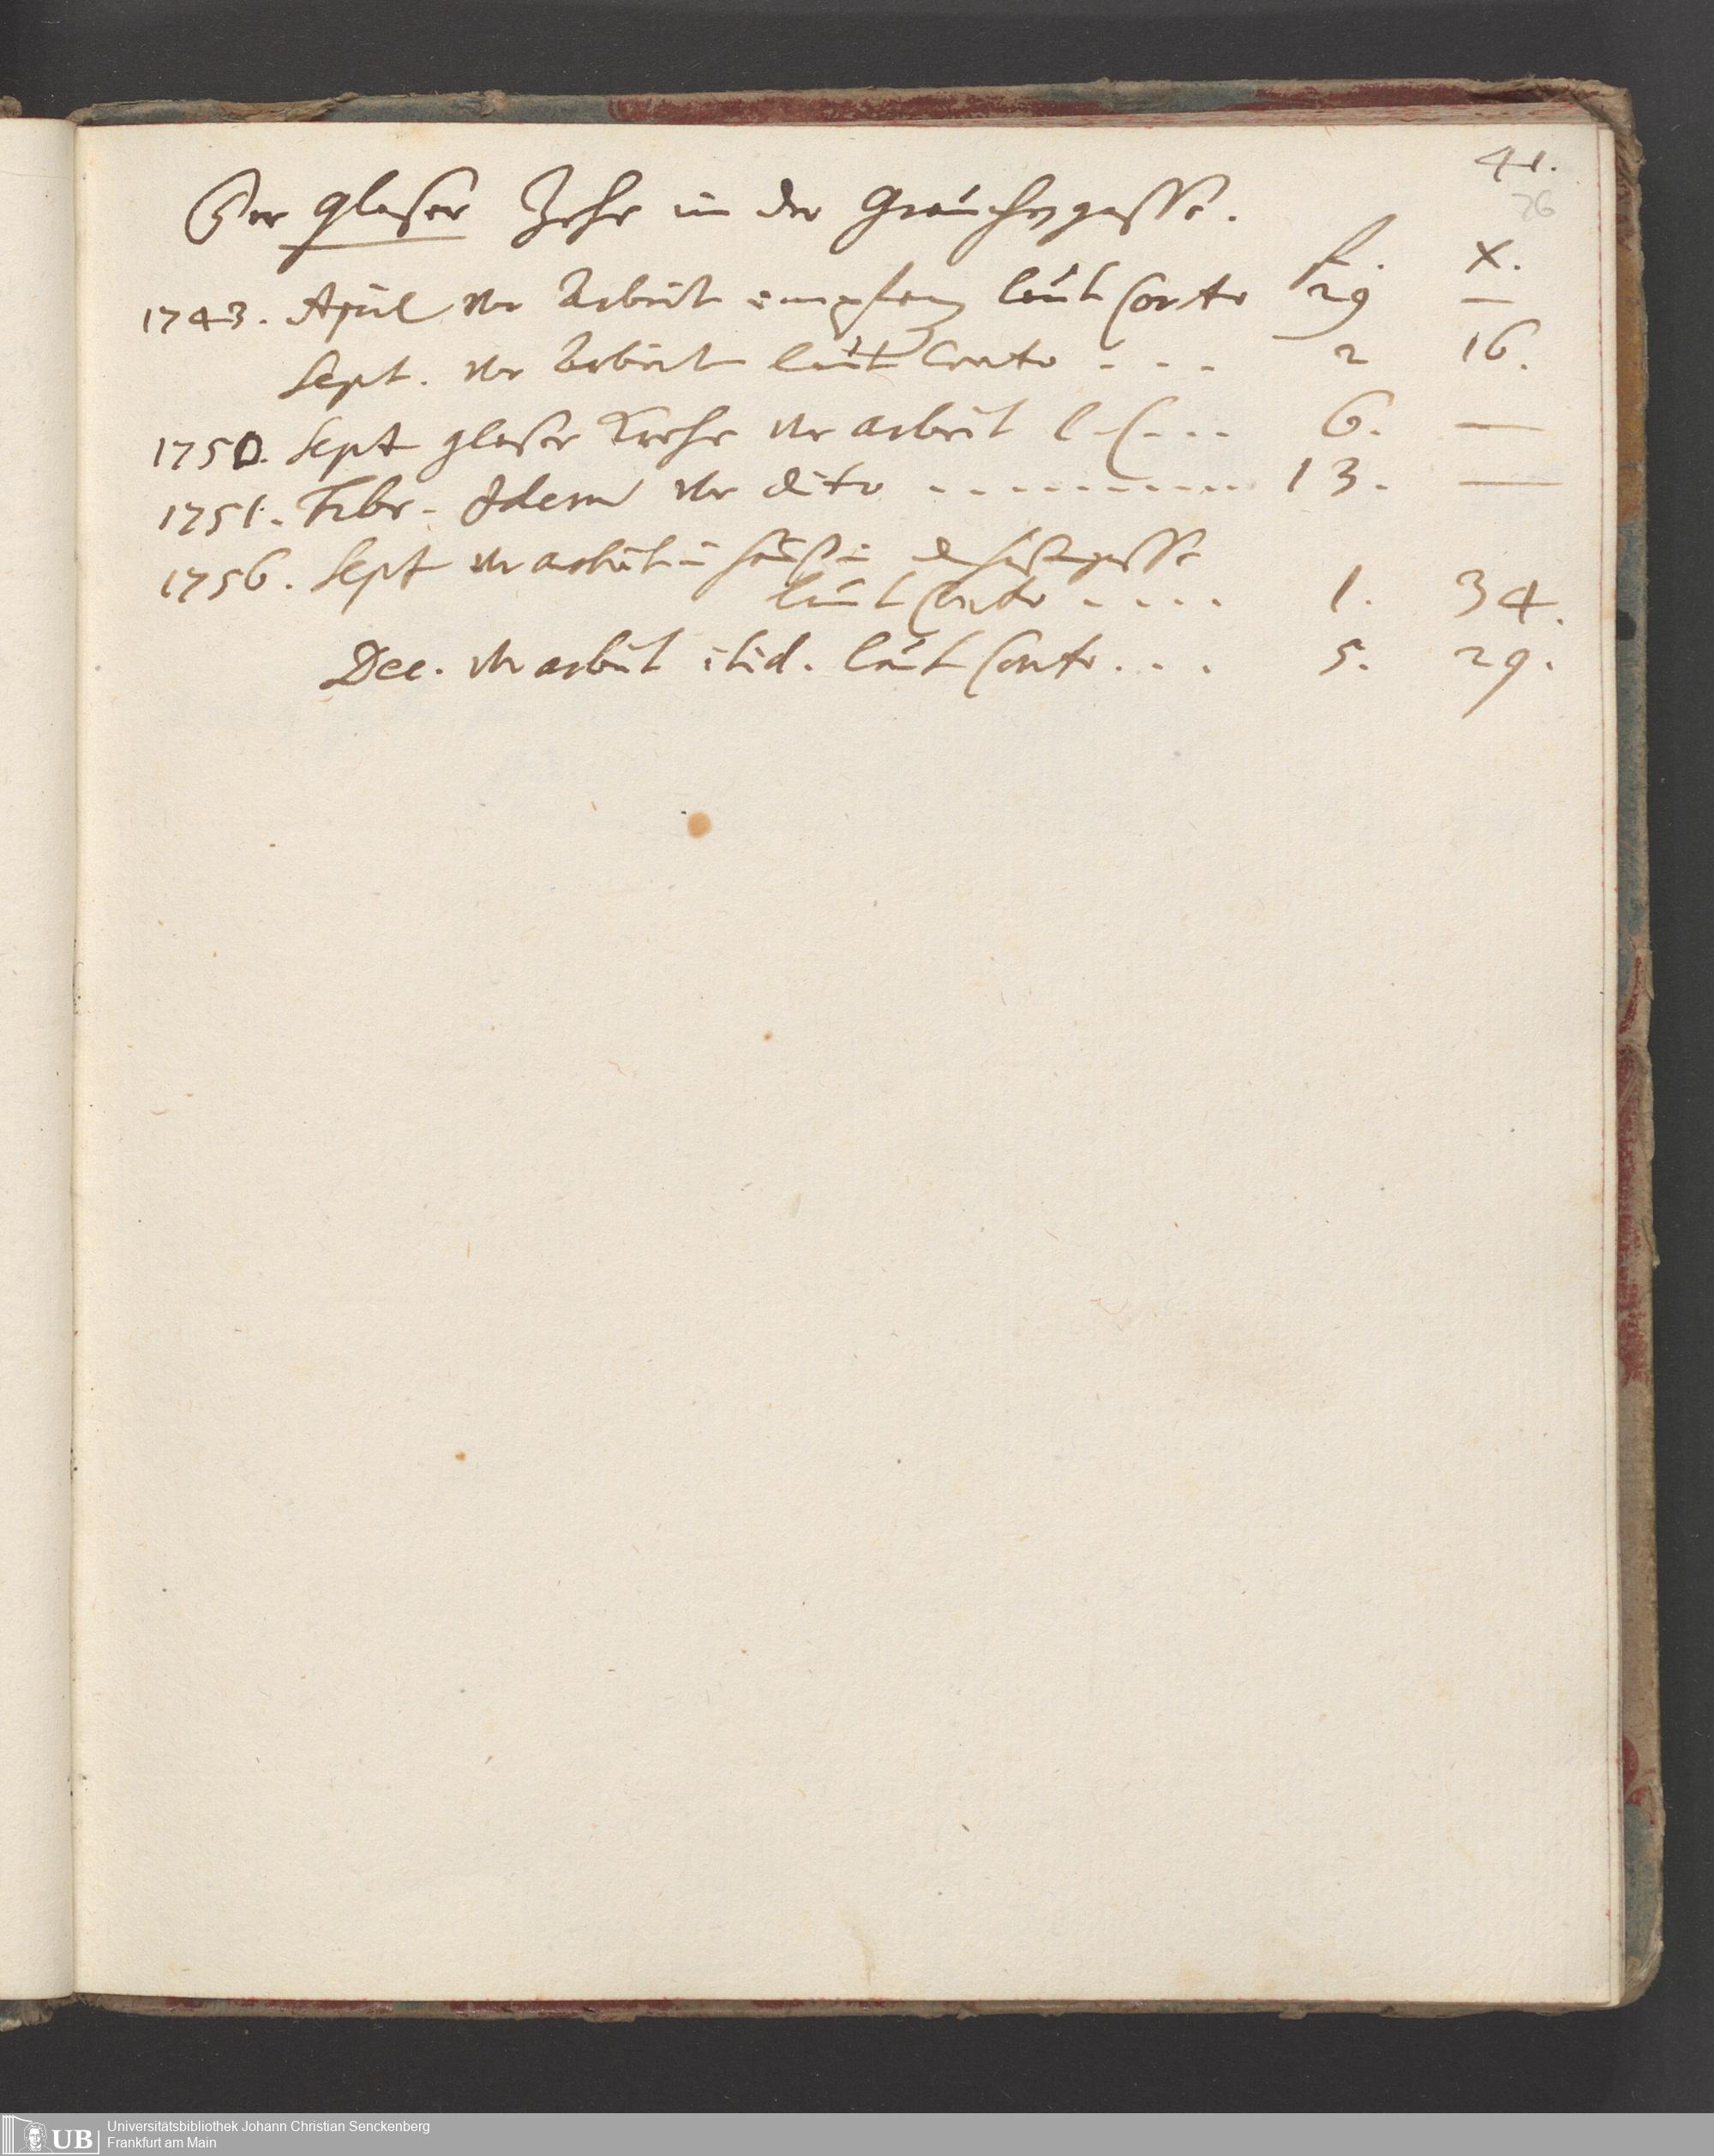 41.
76
Der Glaser Zehe in der Graüchengasse.
f. x.
1743. April vor Arbeit empfang laüt Conto 29 —
Sept. vor Arbeit laüt Conto - - - 2 16.
1750. Sept glaser vor arbeit l. C. - - - 6. —
1751. Febr. Idem vor dito - - - - - - - - - - 13. —
1756. Sept vor arbeit in haüß in der Hasengasse
laüt Conto - - - - 1. 34.
Dec. vor arbeit ibid. laüt Conto . . . 5. 29.
UB
Universitätsbibliothek Johann Christian Senckenberg
Frankfurt am Main